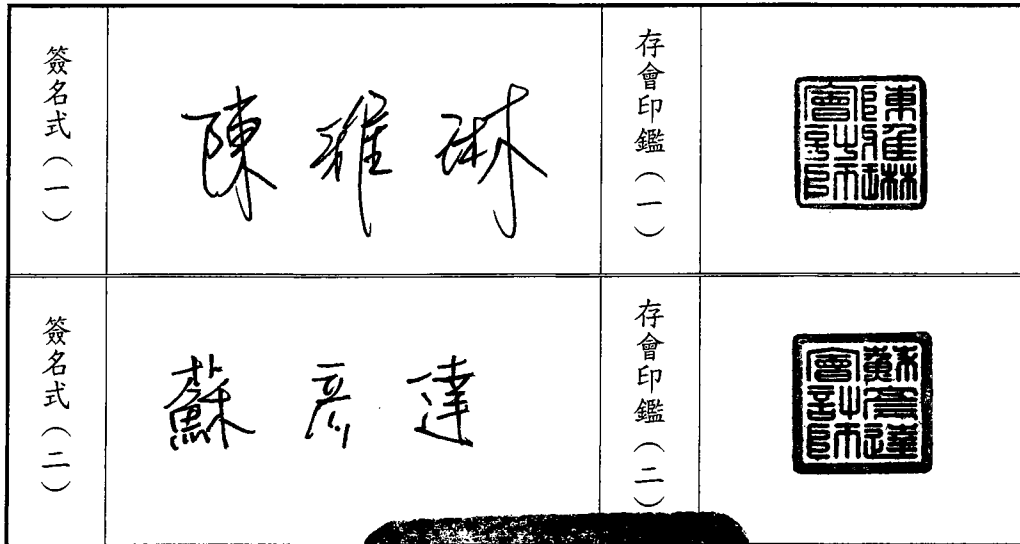 簽名式（一）
陳雅琳
存會印鑑（一）
陳雅琳會計師
簽名式（二）
蘇彥達
存會印鑑（二）
蘇彥達會計師